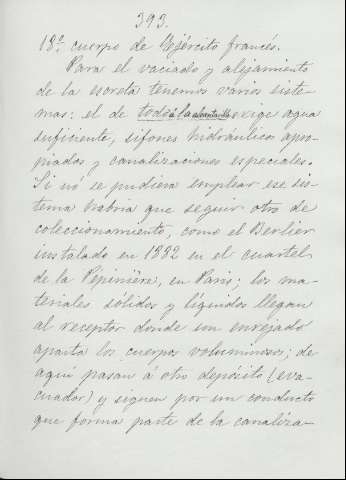 393.
18.º cuerpo de Ejército francés.
Para el vaciado y alejamiento
de la escreta tenemos varios siste-
mas: el de todo á la alcantarilla exige agua
suficiente, sifones hidráulicos apro-
piados y canalizaciones especiales.
Si nó se pudiera emplear ese sis-
tema habria que seguir otro de
coleccionamiento, como el Berlier
instalado en 1882 en el cuartel
de la Pepiniére, en Paris; los ma-
teriales sólidos y líquidos llegan
al receptor donde un enrejado
aparta los cuerpos voluminosos; de
aquí pasan á otro depósito (eva-
cuador) y siguen por un conducto
que forma parte de la canaliza-